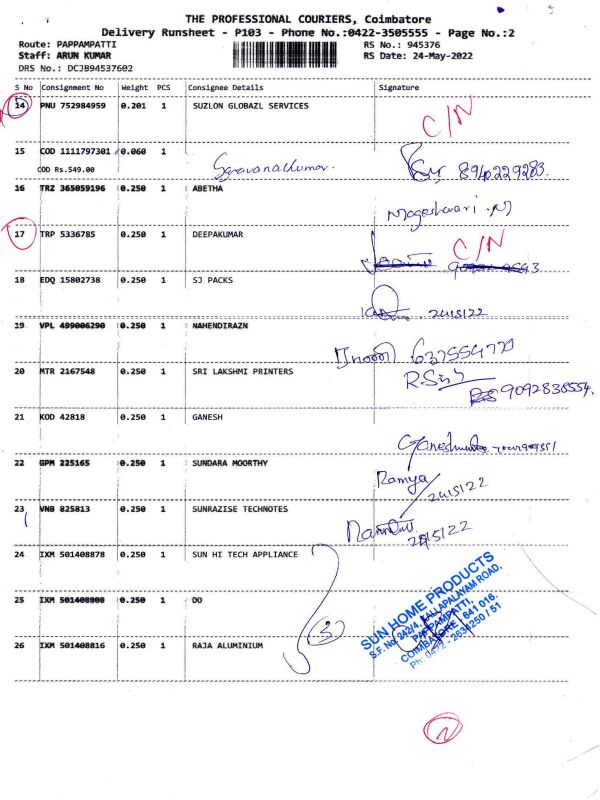 THE PROFESSIONAL COURIERS, Coimbatore
Delivery Runsheet - P103 - Phone No.:0422-3505555 - Page No.:2
Route: PAPPAMPATTI RS No.: 945376
Staff: ARUN KUMAR RS Date: 24-May-2022
DRS No.: DCJB94537602
S No Consignment No Weight PCS Consignee Details Signature
14 PNU 752984959 0.201 1 SUZLON GLOBAZL SERVICES
C/N
15 COD 1111797301 0.060 1
COD Rs.549.00 Saravanakumar. 8940229283.
16 TRZ 365059196 0.250 1 ABETHA
Nageshwari .M
17 TRP 5336785 0.250 1 DEEPAKUMAR
C/N
18 EDQ 15802738 0.250 1 SJ PACKS
24/5/22
19 VPL 499006290 0.250 1 NAHENDIRAZN
20 MTR 2167548 0.250 1 SRI LAKSHMI PRINTERS
9092838554.
21 KOD 42818 0.250 1 GANESH
22 GPM 225165 0.250 1 SUNDARA MOORTHY
Ramya
24/5/22
23 VNB 825813 0.250 1 SUNRAZISE TECHNOTES
24/5/22
24 IXM 501408878 0.250 1 SUN HI TECH APPLIANCE
25 IXM 501408808 0.250 1 DO
3
SUN HOME PRODUCTS
S.F. No. 242/4, KALLAPALAYAM ROAD,
PAPPAMPATTI,
COIMBATORE - 641 016.
Ph: 0422 - 2634250 / 51
26 IXM 501408816 0.250 1 RAJA ALUMINIUM
2